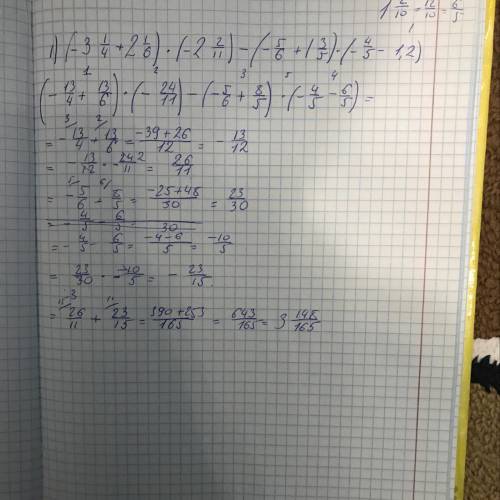 1 2/10 = 12/10 = 6/5
1) (-3 1/4 + 2 1/6) · (-2 2/11) - (-5/6 + 1 3/5) · (-4/5 - 1,2)
1 2 3 5 4
(-13/4 + 13/6) · (-24/11) - (-5/6 + 8/5) · (-4/5 - 6/5) =
= -13/4 + 13/6 = -39+26/12 = -13/12
= -13/12 · -24/11 = 26/11
= -5/6 + 8/5 = -25+48/30 = 23/30
= -4/5 - 6/5 = -4-6/5 = -10/5
= 23/30 · -10/5 = -23/15
= 26/11 + 23/15 = 390+253/165 = 643/165 = 3 148/165